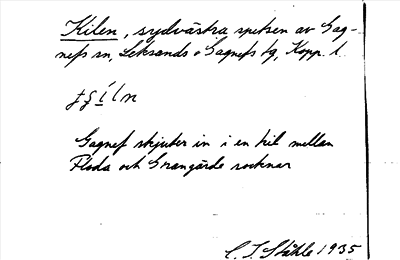 Kilen, sydvästra spetsen av Gag-
nefs sn, Leksands o Gagnefs tg, Kopp. l.
Gagnef skjuter in i en kil mellan
Floda och Grangärde socknar
C. I. Ståhle 1935